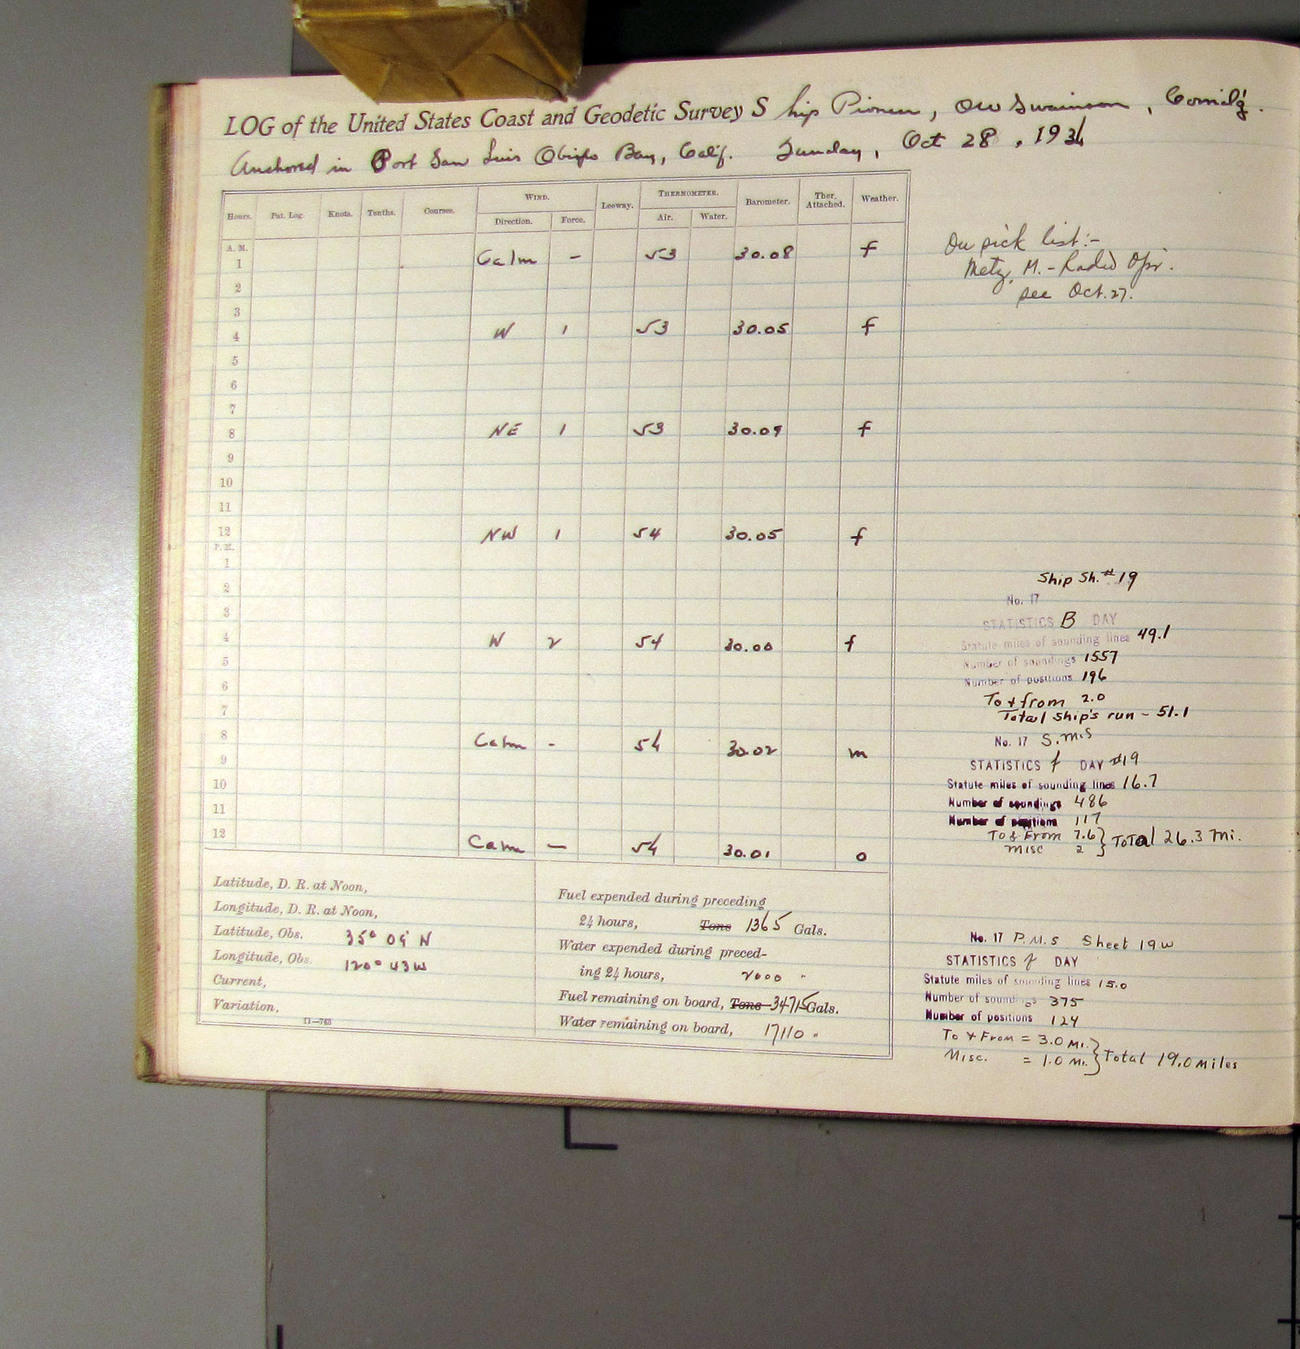 LOG of the United States Coast and Geodetic Survey Ship Pioneer, OW Swainson, Comd'g.
Anchored in Port San Luis Obispo Bay, Calif. Sunday, Oct 28, 1934
Hours. Pat. Log. Knots. Tenths. Courses. WIND. Direction. Force. Leeway. THERMOMETER. Air. Water. Barometer. Ther. Attached. Weather.
A. M.
1 Calm - 53 30.08 f
2
3
4 W 1 53 30.05 f
5
6
7
8 NE 1 53 30.09 f
9
10
11
12 NW 1 54 30.05 f
P. M.
1
2
3
4 W 2 54 30.00 f
5
6
7
8 Calm - 54 30.02 m
9
10
11
12 Calm — 54 30.01 o
Latitude, D. R. at Noon,
Longitude, D. R. at Noon,
Latitude, Obs. 35° 09' N
Longitude, Obs. 120° 43 W
Current,
Variation,
11—763
Fuel expended during preceding
24 hours, Tons 1365 Gals.
Water expended during preced-
ing 24 hours, 2000 "
Fuel remaining on board, Tons 34715 Gals.
Water remaining on board, 17110 "
On sick list:-
Metz, M. - Radio Opr.
see Oct. 27.
Ship Sh. #19
No. 17
STATISTICS B DAY
Statute miles of sounding lines 49.1
Number of soundings 1557
Number of positions 196
To & from 2.0
Total ship's run - 51.1
No. 17 S.M.S
STATISTICS f DAY #19
Statute miles of sounding lines 16.7
Number of soundings 486
Number of positions 117
To & From 7.6
Misc 2 } Total 26.3 mi.
No. 17 P.M.S Sheet 19W
STATISTICS f DAY
Statute miles of sounding lines 15.0
Number of soundings 375
Number of positions 124
To & From = 3.0 Mi.
Misc. = 1.0 Mi. } Total 19.0 miles